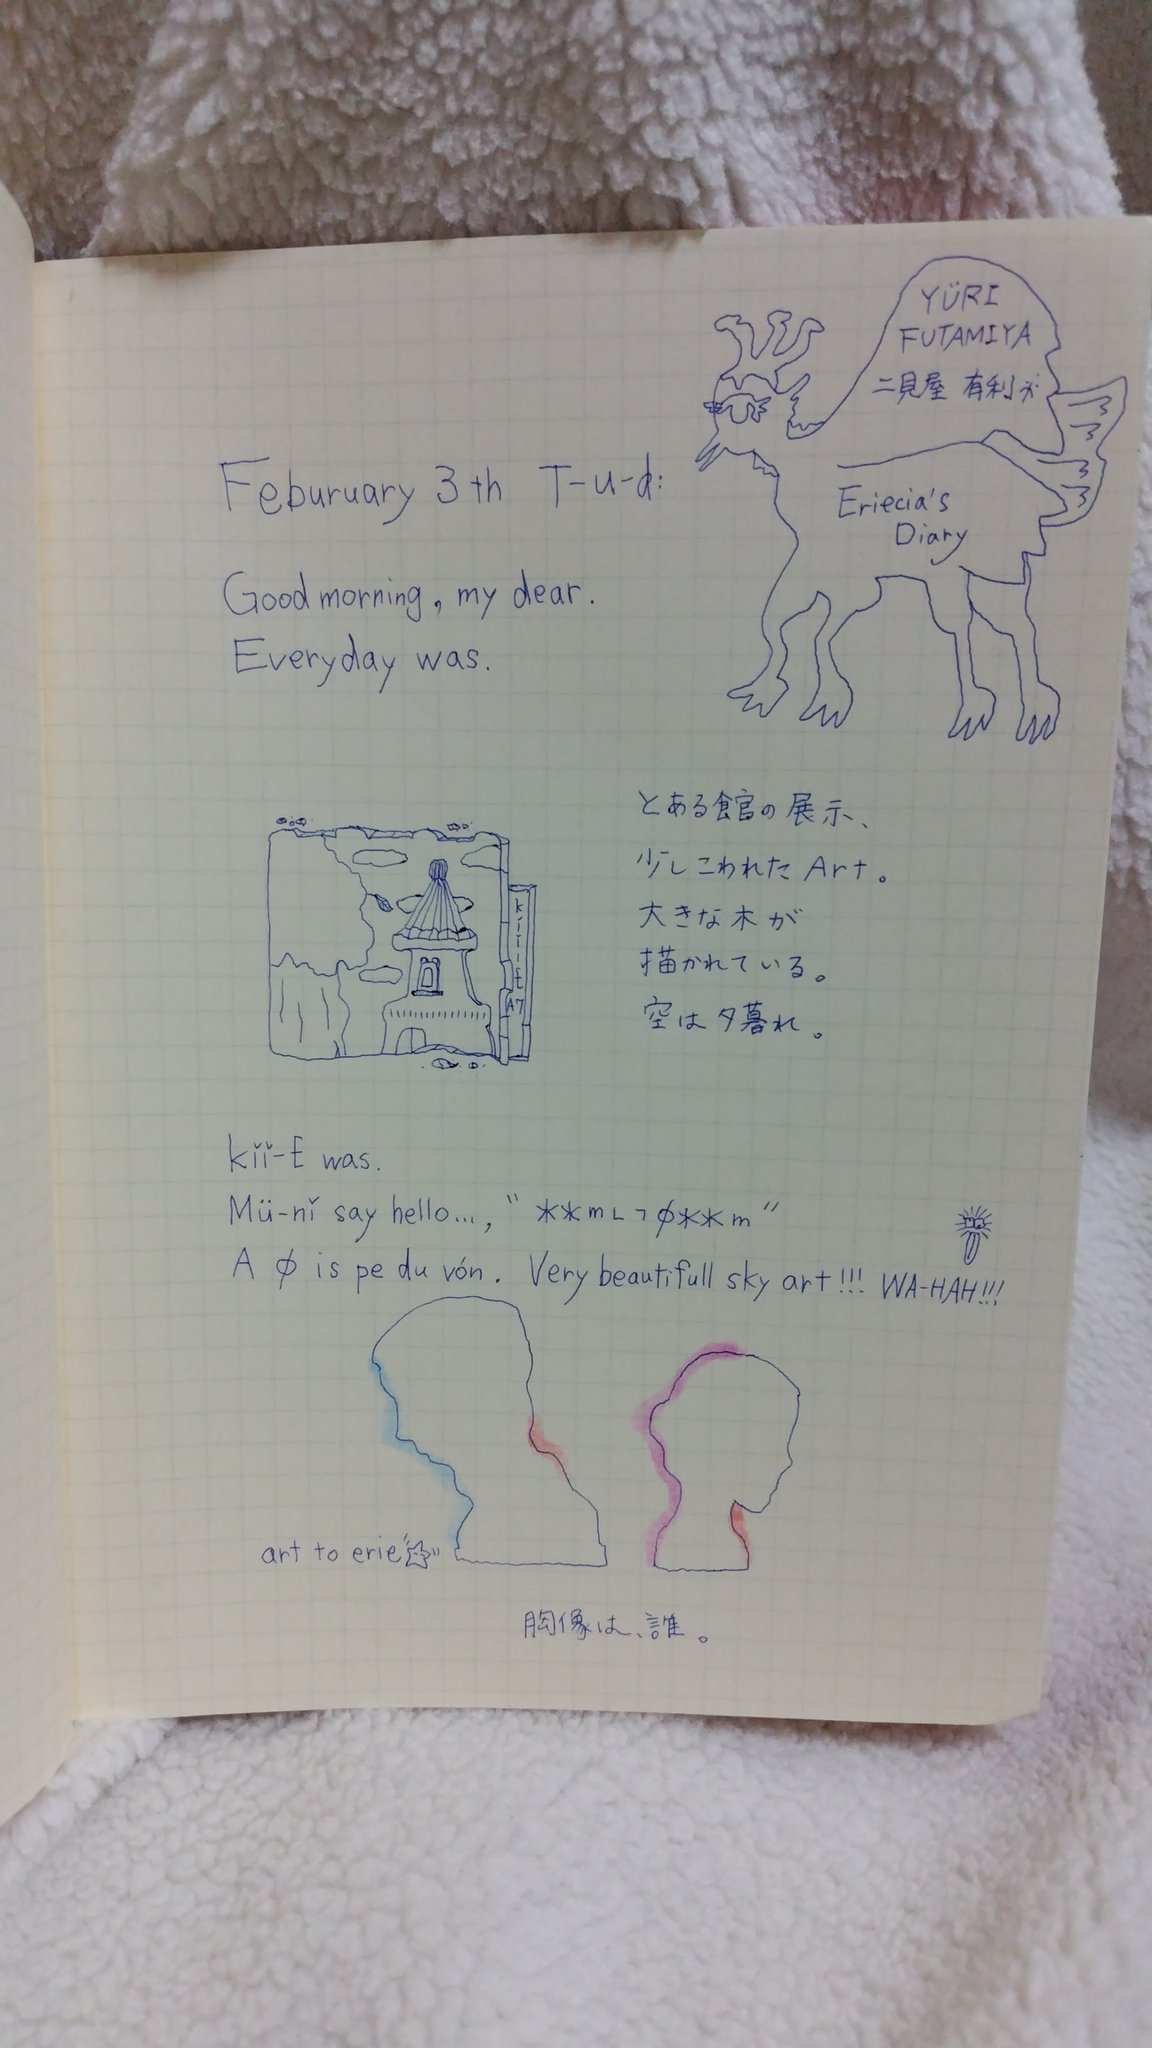 YÜRI
FUTAMIYA
二見屋 有利
Eriecia's
Diary
Feburuary 3th T-u-d:
Good morning, my dear.
Everyday was.
とある館の展示、
少しこわれた Art。
大きな木が
描かれている。
空は夕暮れ。
A7
was.
Mü-nǐ say hello..., "**m∟¬∅**m"
A ∅ is pe du vón. Very beautifull sky art!!! WA-HAH!!!
art to erie"☆"
胸像は、誰。